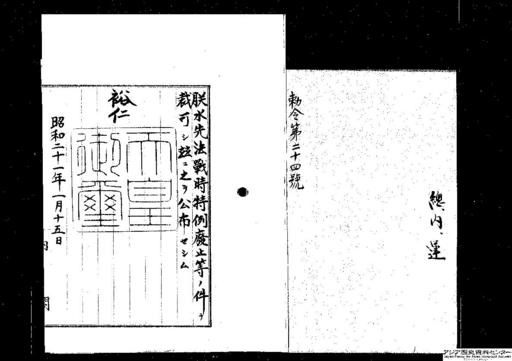 總、内、運
勅令第二十四號
朕水先法戰時特例廢止等ノ件ヲ
裁可シ茲ニ之ヲ公布セシム
裕仁
天皇
御璽
昭和二十一年一月十五日
内閣
アジア歴史資料センター
Japan Center for Asian Historical Records